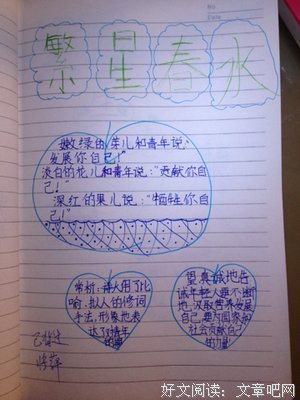 No
Date
繁星春水
嫩绿的芽儿和青年说:
发展你自己!"
淡白的花儿和青年说:"贡献你自
己!"
深红的果儿说:"牺牲你自
己!"
赏析:诗人用了比
喻、拟人的修辞
手法,形象地表
达了对青年
的
望真诚地告
诫年轻人要不断
地汲取营养发展
自己,要为国家和
社会贡献自己
的力量!
好文阅读:文章吧网